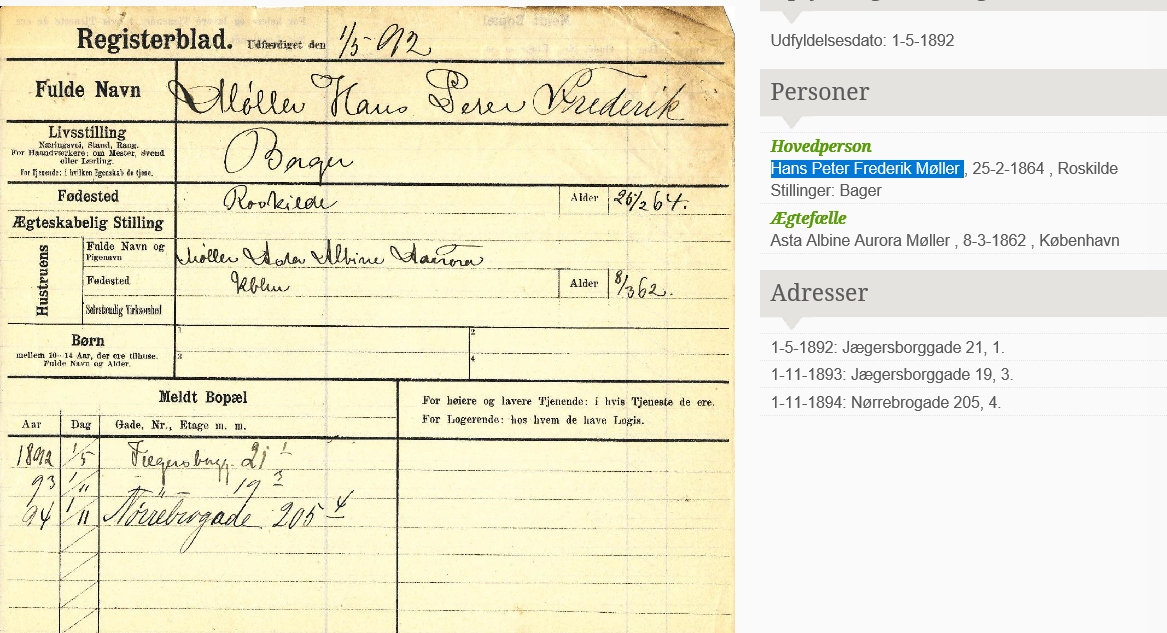 Registerblad. Udfærdiget den 1/5-92
Fulde Navn Møller Hans Peter Frederik
Livsstilling
Næringsvei, Stand, Rang.
For Haandværkere: om Mester, Svend
eller Lærling.
For Tjenende: i hvilken Egenskab de tjene.
Bager
Fødested Roskilde Alder 25/2 64.
Ægteskabelig Stilling
Hustruens
Fulde Navn og
Pigenavn
Møller Asta Albine Aurora
Fødested Kbhn Alder 8/3 62.
Selvstændig Virksomhed
Børn
mellem 10-14 Aar, der ere tilhuse.
Fulde Navn og Alder.
1 2
3 4
Meldt Bopæl
For høiere og lavere Tjenende: i hvis Tjeneste de ere.
For Logerende: hos hvem de have Logis.
Aar Dag Gade, Nr., Etage m. m.
1892 1/5 Jægersborgg. 21 1
93 1/11 " 19 3
94 1/11 Nørrebrogade 205 4
Udfyldelsesdato: 1-5-1892
Personer
Hovedperson
Hans Peter Frederik Møller , 25-2-1864 , Roskilde
Stillinger: Bager
Ægtefælle
Asta Albine Aurora Møller , 8-3-1862 , København
Adresser
1-5-1892: Jægersborggade 21, 1.
1-11-1893: Jægersborggade 19, 3.
1-11-1894: Nørrebrogade 205, 4.